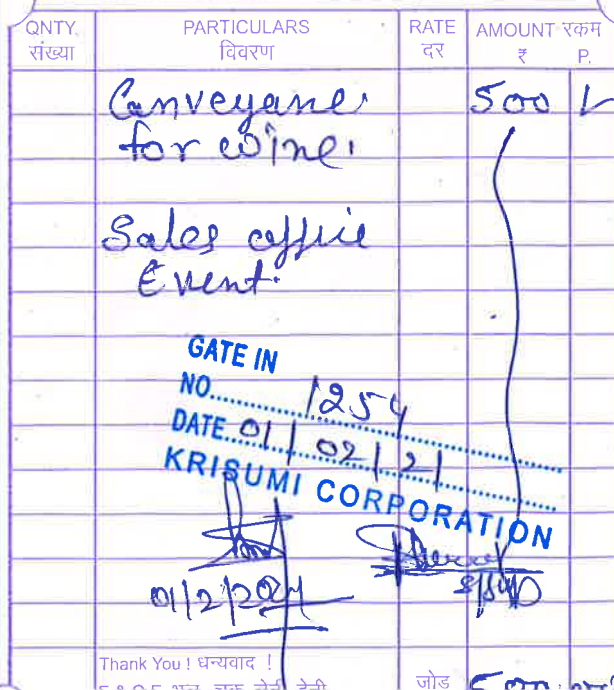 QNTY. PARTICULARS RATE AMOUNT रकम
संख्या विवरण दर ₹ P.
Conveyance 500
for wine
Sales office
Event.
GATE IN
NO. 1254
DATE 01/02/21
KRISUMI CORPORATION
01/2/2021
Thank You ! धन्यवाद !
जोड़ 500